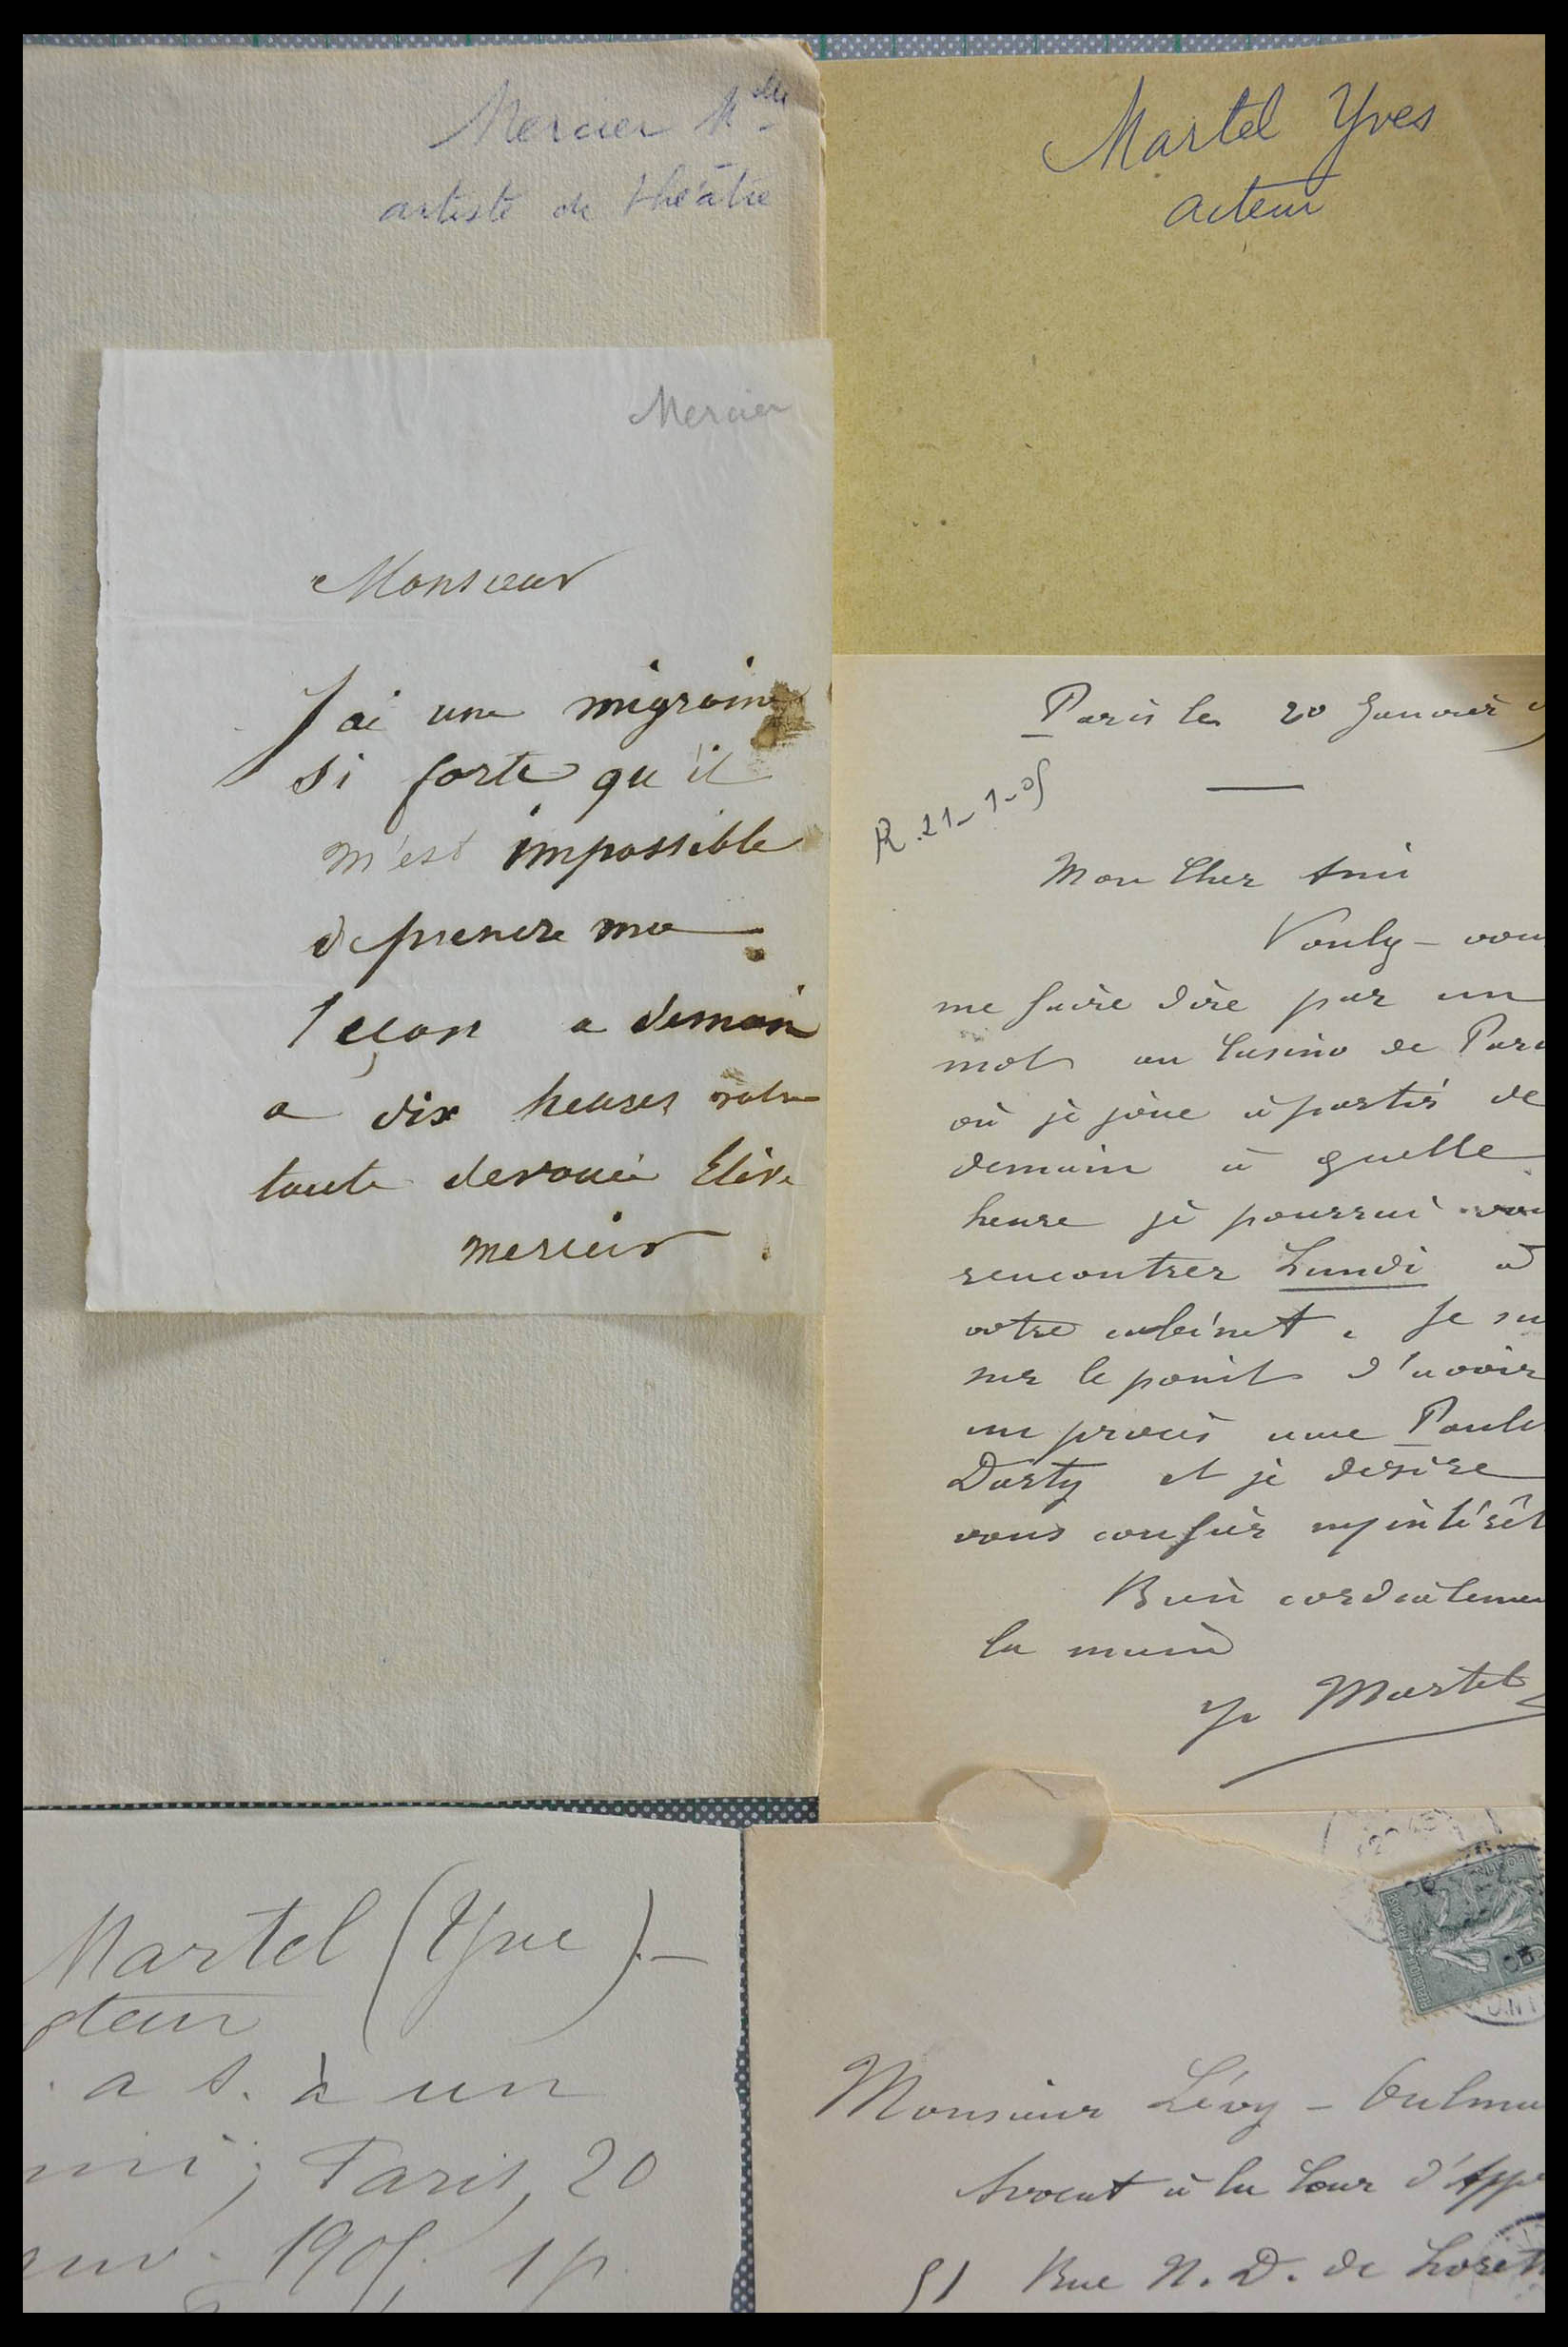 Mercier Mlle
artiste de théâtre
Mercier
Monsieur
J'ai une migraine
si forte qu'il
m'est impossible
de prendre ma
leçon a demain
a dix heures votre
toute devouée Elève
mercier
Martel Yves
acteur
Paris le 20 Janvier
R. 21-1-05
Mon Cher Ami
Voulez-vou
me faire dire par un
mot au Casino de Pari
où je joue à partir de
demain à quelle
heure je pourrai vou
rencontrer Lundi à
votre cabinet. Je sui
sur le point d'avoir
un procès avec Paule
Darty et je desire
vous confier my intérêt
Bien cordialemen
la main
Yv Martel
Martel (Yve).—
cteur
. a s. à un
mi; Paris, 20
anv. 1905; 1 p.
Monsieur Lévy - Oulma
Avocat à la Cour d'Appe
51 Rue N. D. de Lorett